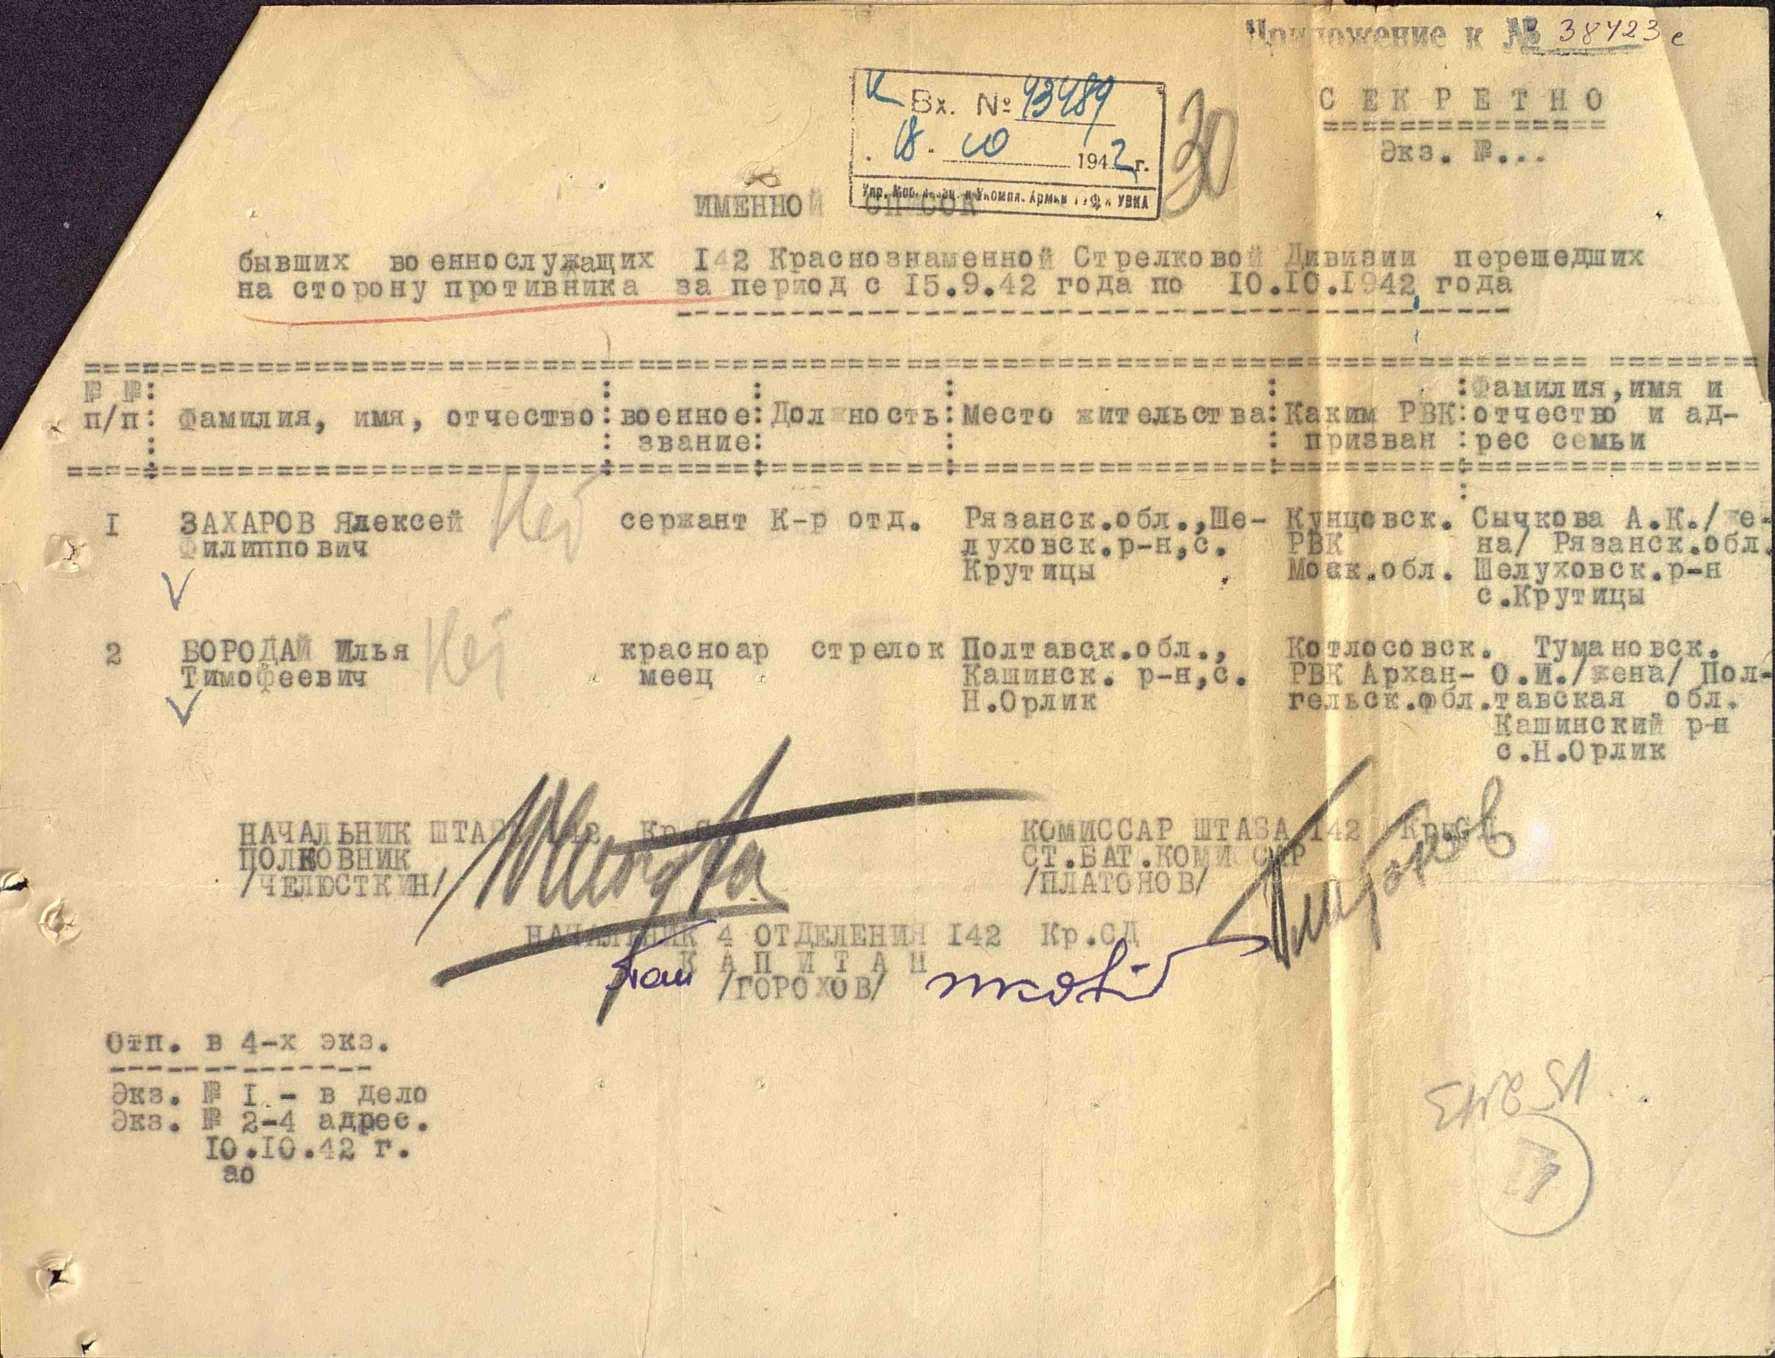 Приложение к № 38423 с
СЕКРЕТНО
Экз. №...
Вх. № 43489
18. 10 1942 г.
30
ИМЕННОЙ СПИСОК
бывших военнослужащих 142 Краснознаменной Стрелковой Дивизии перешедших
на сторону противника за период с 15.9.42 года по 10.10.1942 года
№ №: : : : : :Фамилия,имя и
п/п: Фамилия, имя, отчество:военное:Должность:Место жительства:Каким РВК:отчество и ад-
: : звание: : : призван :рес семьи
I ЗАХАРОВ Алексей сержант К-р отд. Рязанск.обл.,Ше- Кунцовск. Сычкова А.К./же-
Филиппович луховск.р-н,с. РВК на/ Рязанск.обл.
Крутицы Моск.обл. Шелуховск.р-н
с.Крутицы
2 БОРОДАЙ Илья красноар стрелок Полтавск.обл., Котлосовск. Тумановск.
Тимофеевич меец Кашинск. р-н,с. РВК Архан- О.И./жена/ Пол-
Н.Орлик гельск.обл.тавская обл.
Кашинский р-н
с.Н.Орлик
НАЧАЛЬНИК ШТАБА 142 Кр.СД КОМИССАР ШТАБА 142 Кр.СД
ПОЛКОВНИК СТ.БАТ.КОМИССАР
/ЧЕЛЮСТКИН/ /ПЛАТОНОВ/
Платонов
НАЧАЛЬНИК 4 ОТДЕЛЕНИЯ 142 Кр.СД
КАПИТАН
/ГОРОХОВ/
Отп. в 4-х экз.
Экз. № I - в дело
Экз. № 2-4 адрес.
10.10.42 г.
ао